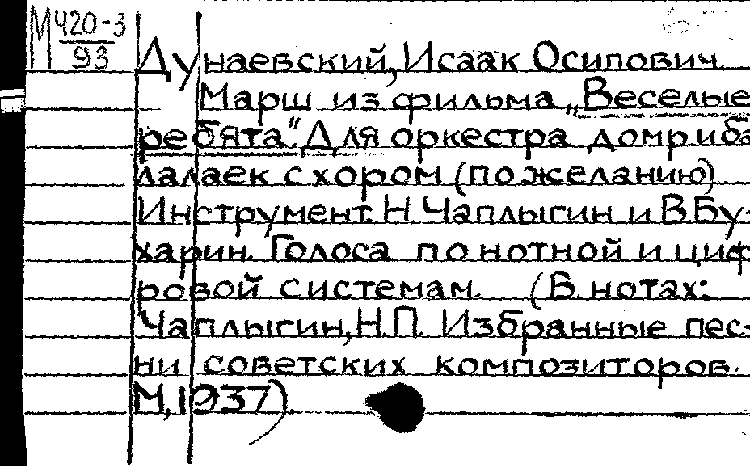 М 420-3
93
Дунаевский, Исаак Осипович
Марш из фильма „Веселые
ребята". Для оркестра домр и ба
лалаек с хором (по желанию)
Инструмент. Н. Чаплыгин и В. Бу-
харин. Голоса по нотной и циф
ровой системам. (В нотах:
Чаплыгин, Н.П. Избранные пес-
ни советских композиторов.
М., 1937)